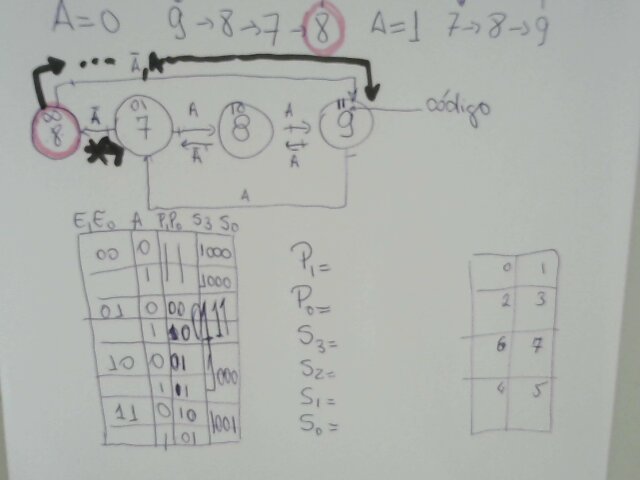 A=0 9→8→7→8 A=1 7→8→9
... Ā, A
00 8 Ā 01 7 A Ā 10 8 A Ā 11 9 código
A
E₁E₀ A P₁P₀ S₃ S₀
00 0 11 1000
1 11 1000
01 0 00 0111
1 10
10 0 01 1000
1 11
11 0 10 1001
1 01
P₁=
P₀=
S₃=
S₂=
S₁=
S₀=
0 1
2 3
6 7
4 5